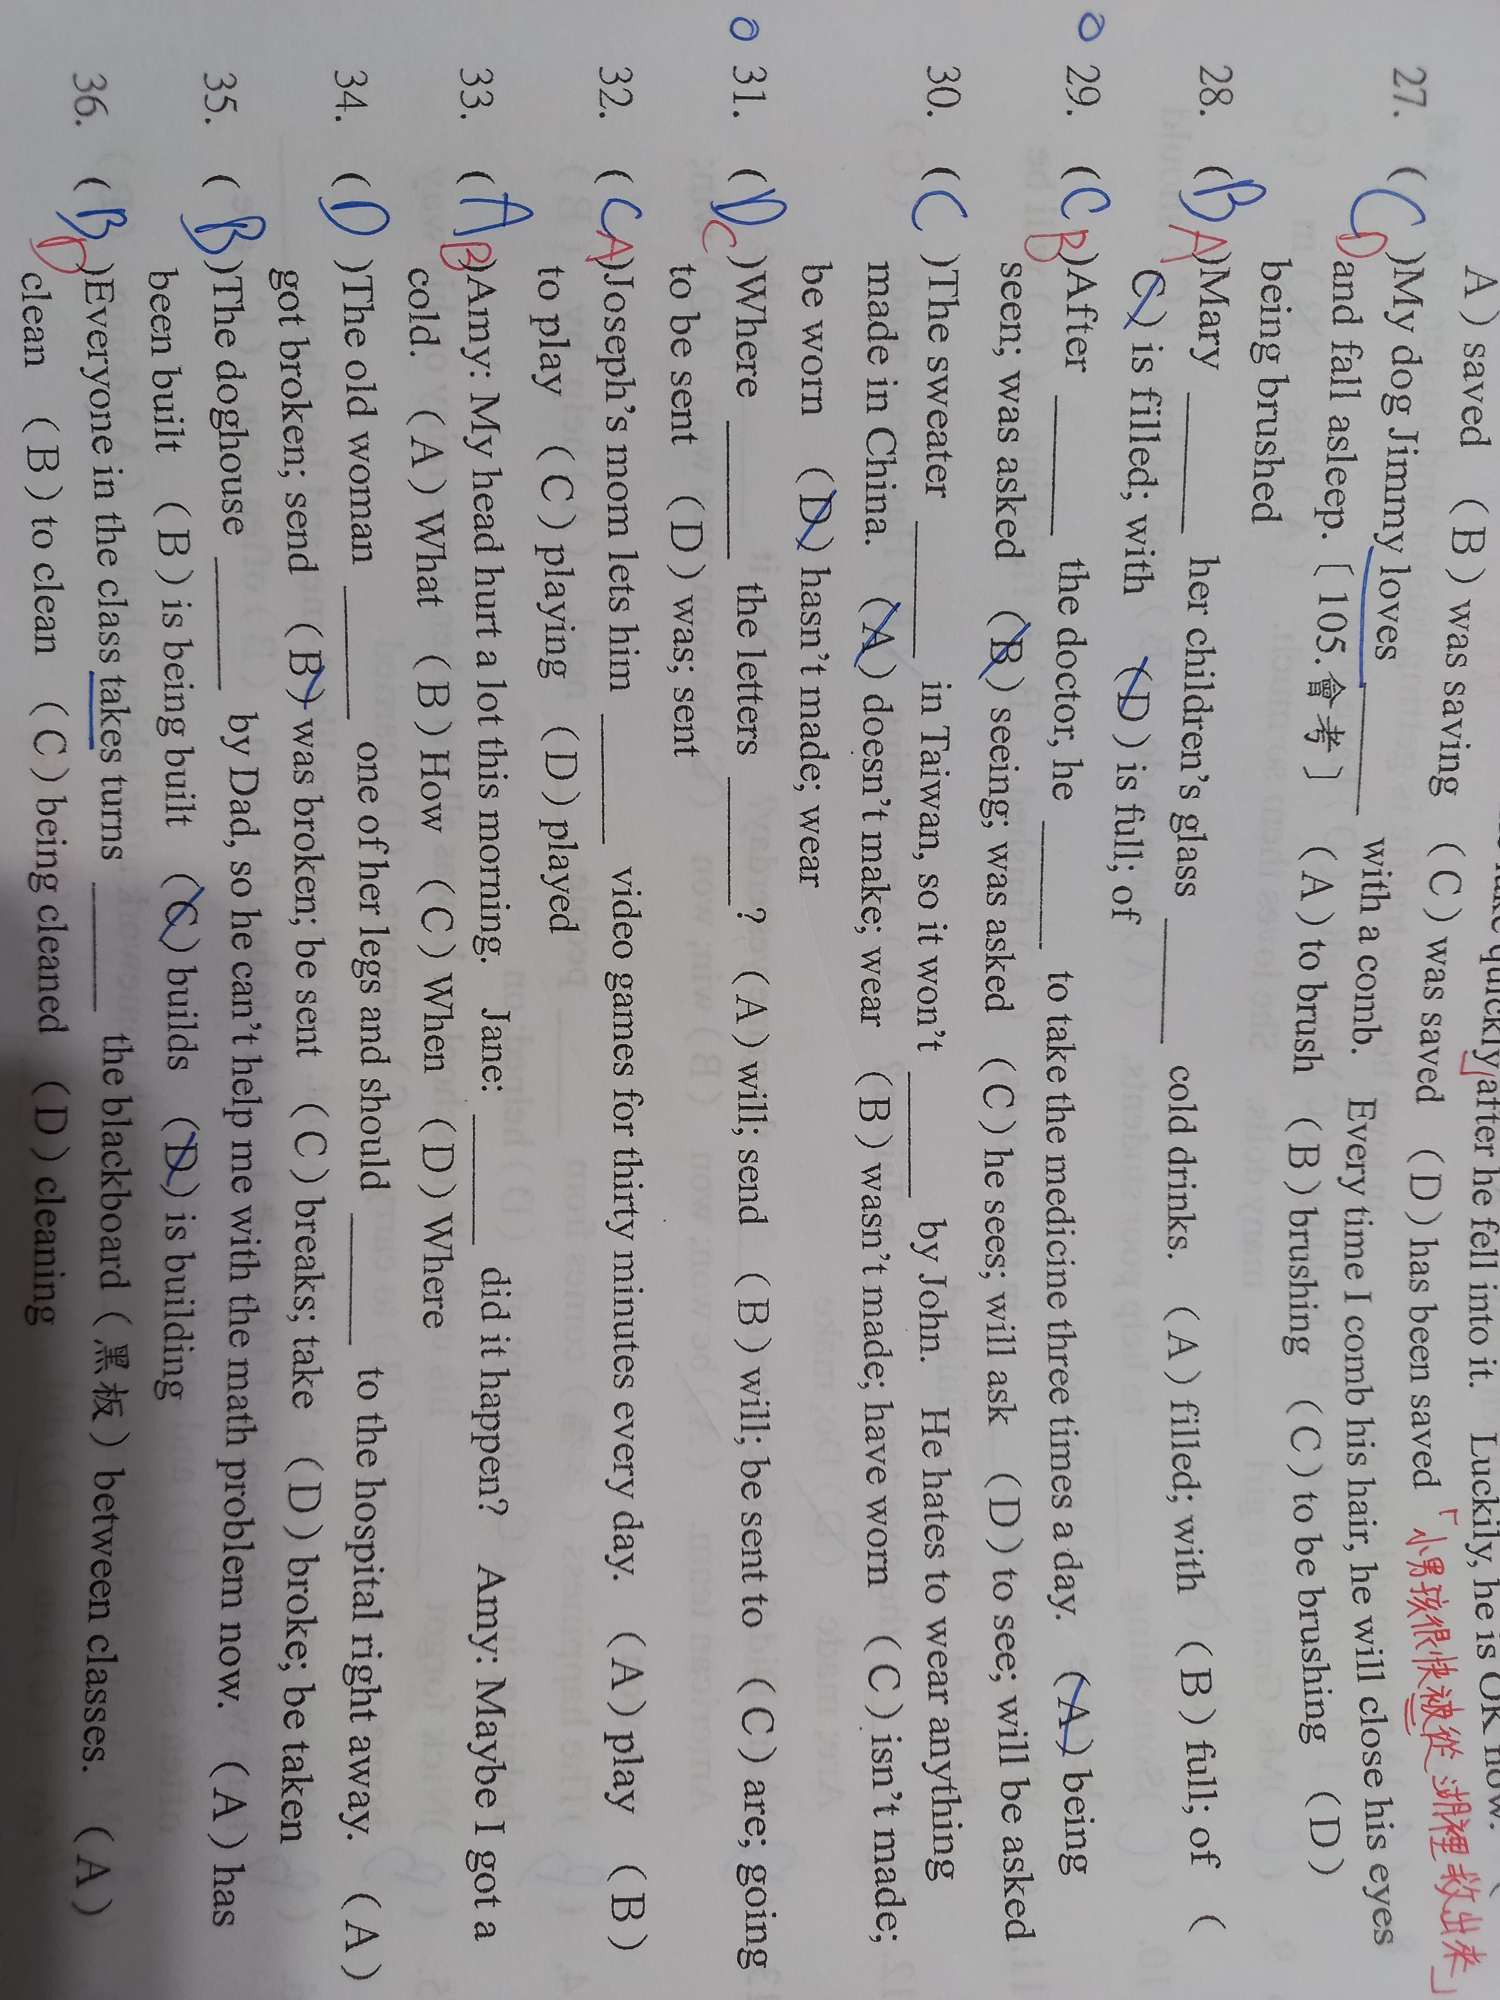 quickly after he fell into it. Luckily, he is OK now. (
A) saved (B) was saving (C) was saved (D) has been saved 「小男孩很快被從湖裡救出來」
27. (C D)My dog Jimmy loves ______ with a comb. Every time I comb his hair, he will close his eyes
and fall asleep.〔105.會考〕 (A) to brush (B) brushing (C) to be brushing (D)
being brushed
28. (B A)Mary ______ her children's glass ______ cold drinks. (A) filled; with (B) full; of (
C) is filled; with (D) is full; of
29. (C B)After ______ the doctor, he ______ to take the medicine three times a day. (A) being
seen; was asked (B) seeing; was asked (C) he sees; will ask (D) to see; will be asked
30. (C )The sweater ______ in Taiwan, so it won't ______ by John. He hates to wear anything
made in China. (A) doesn't make; wear (B) wasn't made; have worn (C) isn't made;
be worn (D) hasn't made; wear
31. (D C)Where ______ the letters ______? (A) will; send (B) will; be sent to (C) are; going
to be sent (D) was; sent
32. (C A)Joseph's mom lets him ______ video games for thirty minutes every day. (A) play (B)
to play (C) playing (D) played
33. (A B)Amy: My head hurt a lot this morning. Jane: ______ did it happen? Amy: Maybe I got a
cold. (A) What (B) How (C) When (D) Where
34. (D )The old woman ______ one of her legs and should ______ to the hospital right away. (A)
got broken; send (B) was broken; be sent (C) breaks; take (D) broke; be taken
35. (B )The doghouse ______ by Dad, so he can't help me with the math problem now. (A) has
been built (B) is being built (C) builds (D) is building
36. (B D)Everyone in the class takes turns ______ the blackboard (黑板) between classes. (A)
clean (B) to clean (C) being cleaned (D) cleaning